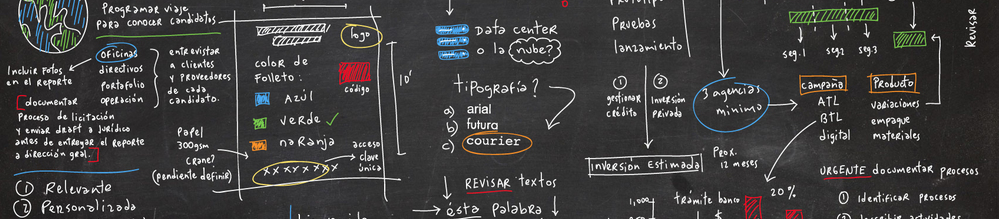 Programar viaje
para conocer candidatos
oficinas
directivos
portafolio
operación
entrevistar
a clientes
y proveedores
de cada
candidato.
Incluir fotos
en el reporte
documentar
Proceso de licitación
y enviar draft a jurídico
antes de entregar el reporte
a dirección gral.
Papel
300gsm
crane?
(pendiente definir)
① Relevante
② Personalizada
logo
color de
Folleto:
código
Azúl
verde ✓
naranja
acceso
clave
única
xxxyxxxx
10'
Data center
o la nube?
tipografía?
a) arial
b) futura
c) courier
REVISAR textos
ésta palabra
Pruebas
lanzamiento
① gestionar
crédito
② Inversión
privada
Inversión Estimada
Prox.
12 meses
1,000
trámite banco
$
20%
3 agencias
mínimo
seg.1 seg2 seg.3
Revisar
campaña
ATL
BTL
digital
Producto
variaciones
empaque
materiales
URGENTE documentar procesos
① Identificar procesos